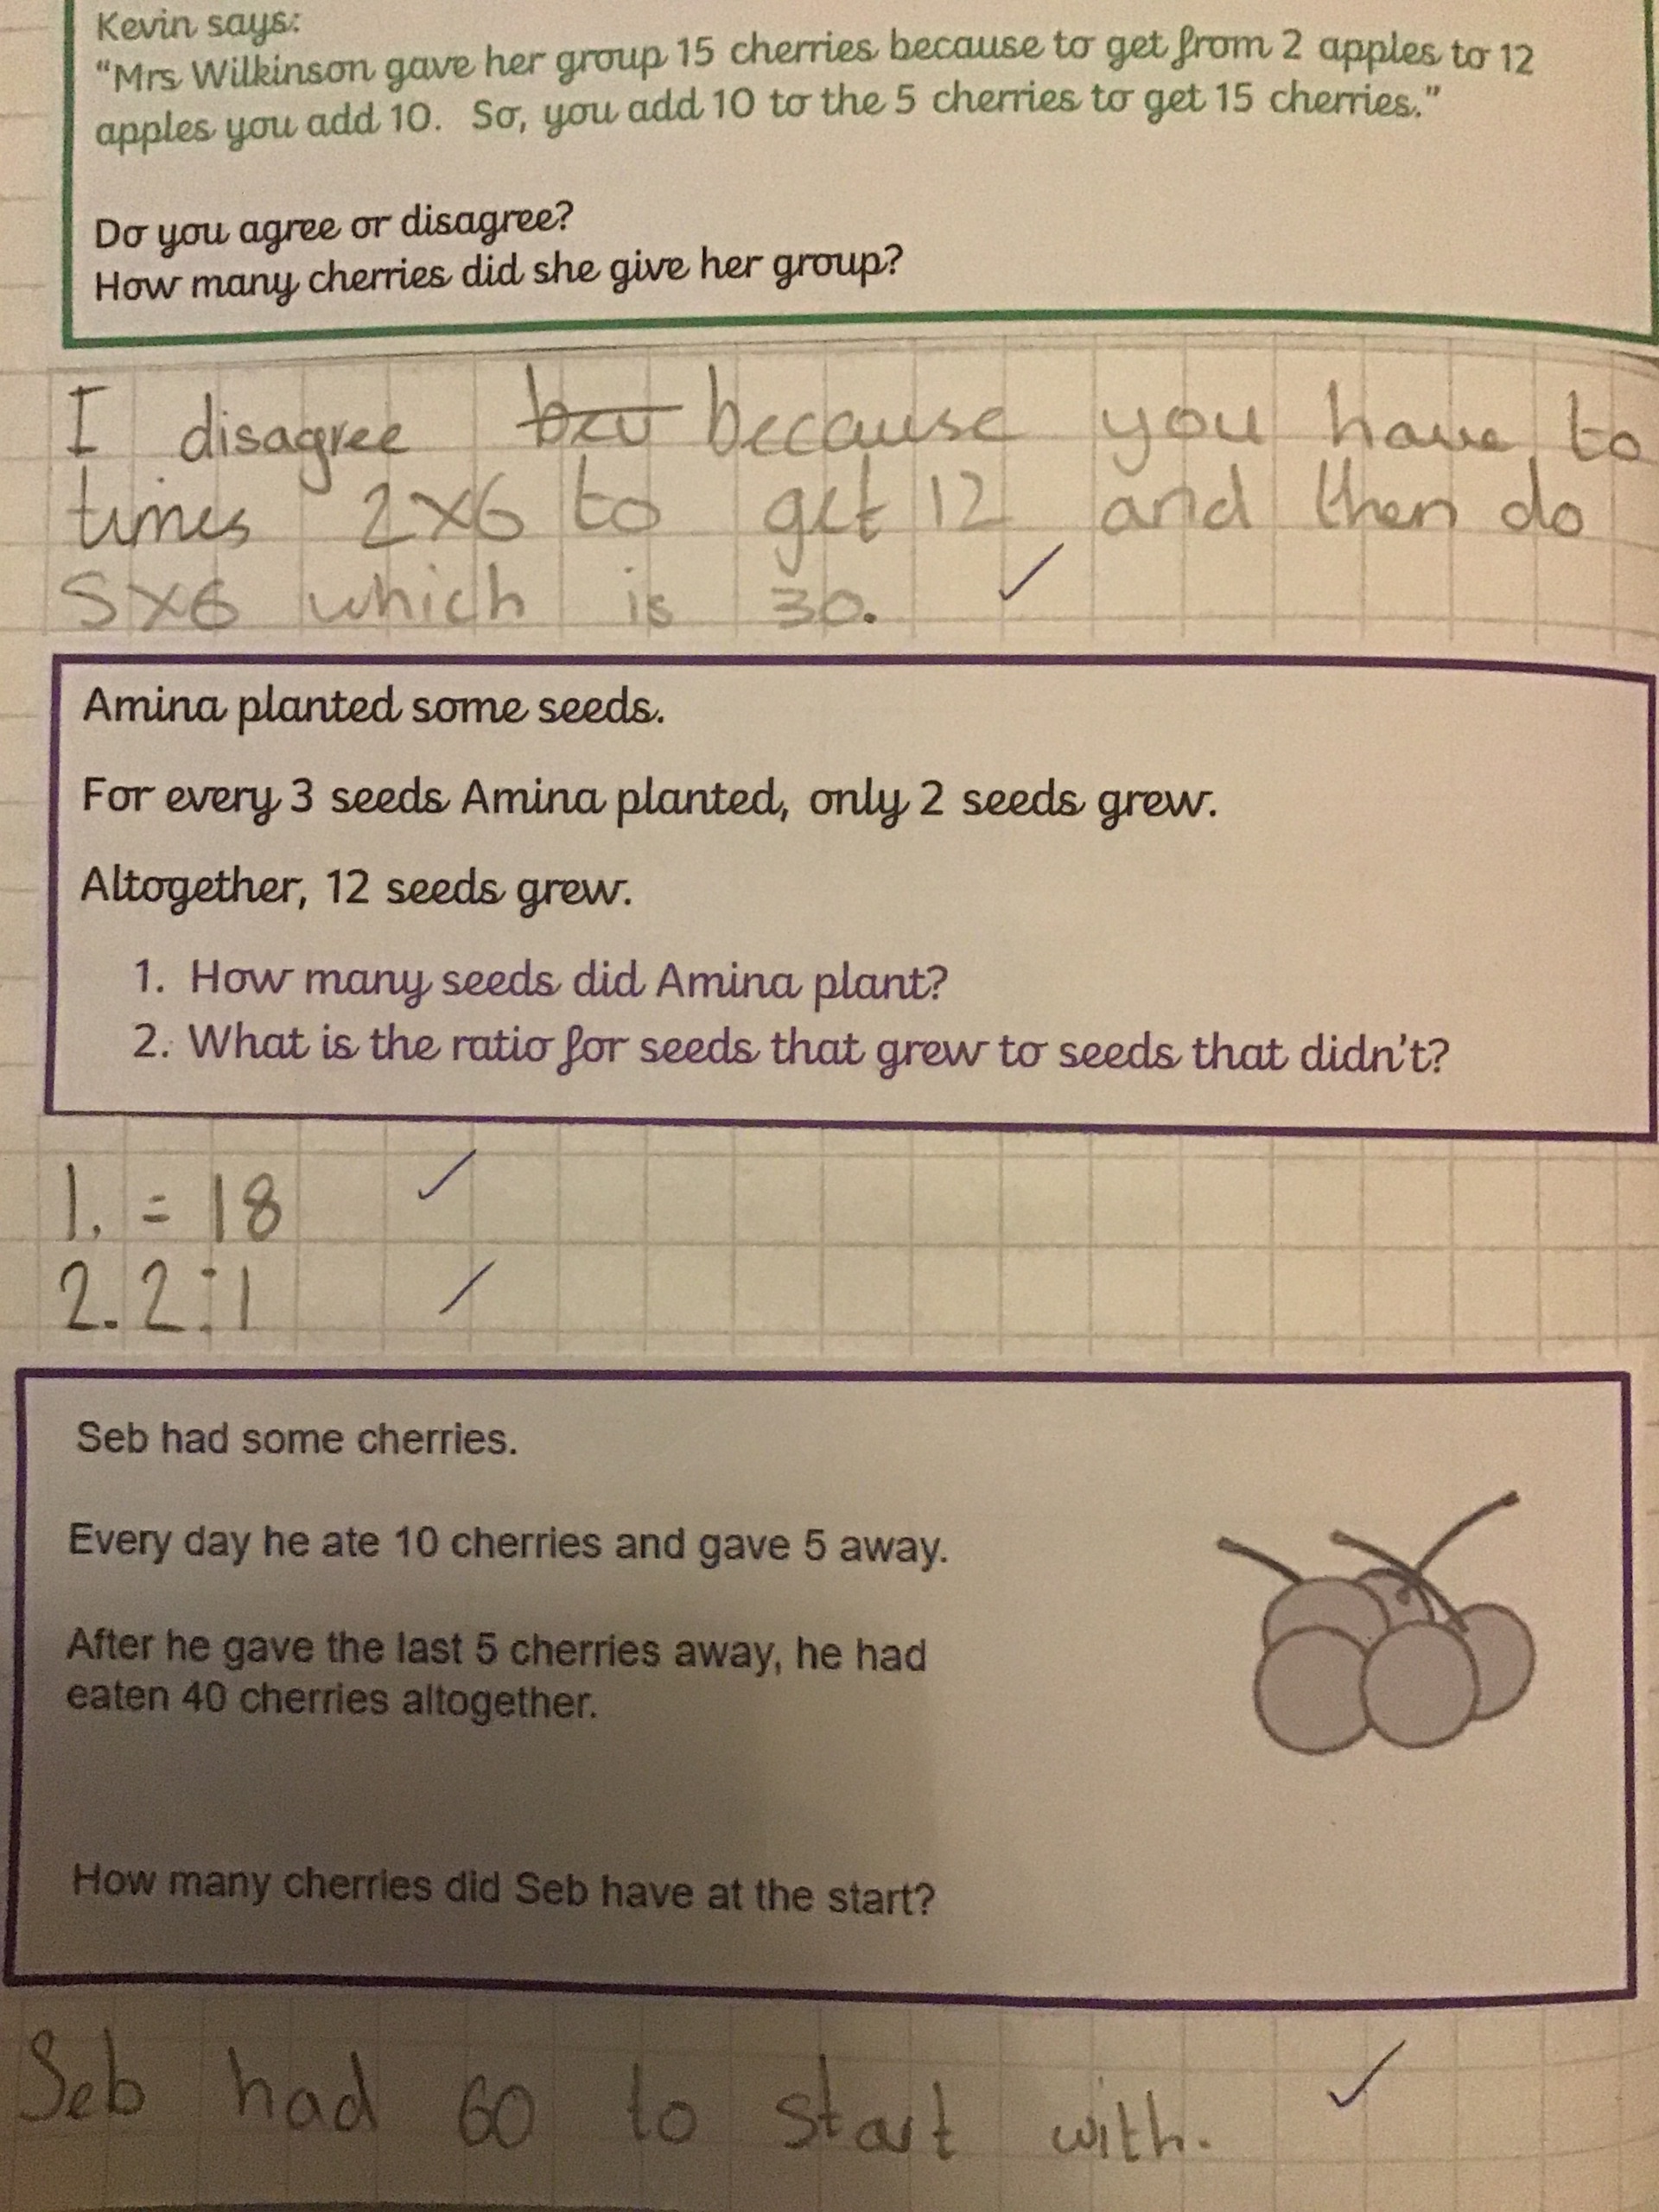 Kevin says:
“Mrs Wilkinson gave her group 15 cherries because to get from 2 apples to 12
apples you add 10. So, you add 10 to the 5 cherries to get 15 cherries.”
Do you agree or disagree?
How many cherries did she give her group?
I disagree because you have to
times 2x6 to get 12 and then do
5x6 which is 30.
Amina planted some seeds.
For every 3 seeds Amina planted, only 2 seeds grew.
Altogether, 12 seeds grew.
1. How many seeds did Amina plant?
2. What is the ratio for seeds that grew to seeds that didn't?
1. = 18
2. 2:1
Seb had some cherries.
Every day he ate 10 cherries and gave 5 away.
After he gave the last 5 cherries away, he had
eaten 40 cherries altogether.
How many cherries did Seb have at the start?
Seb had 60 to start with.